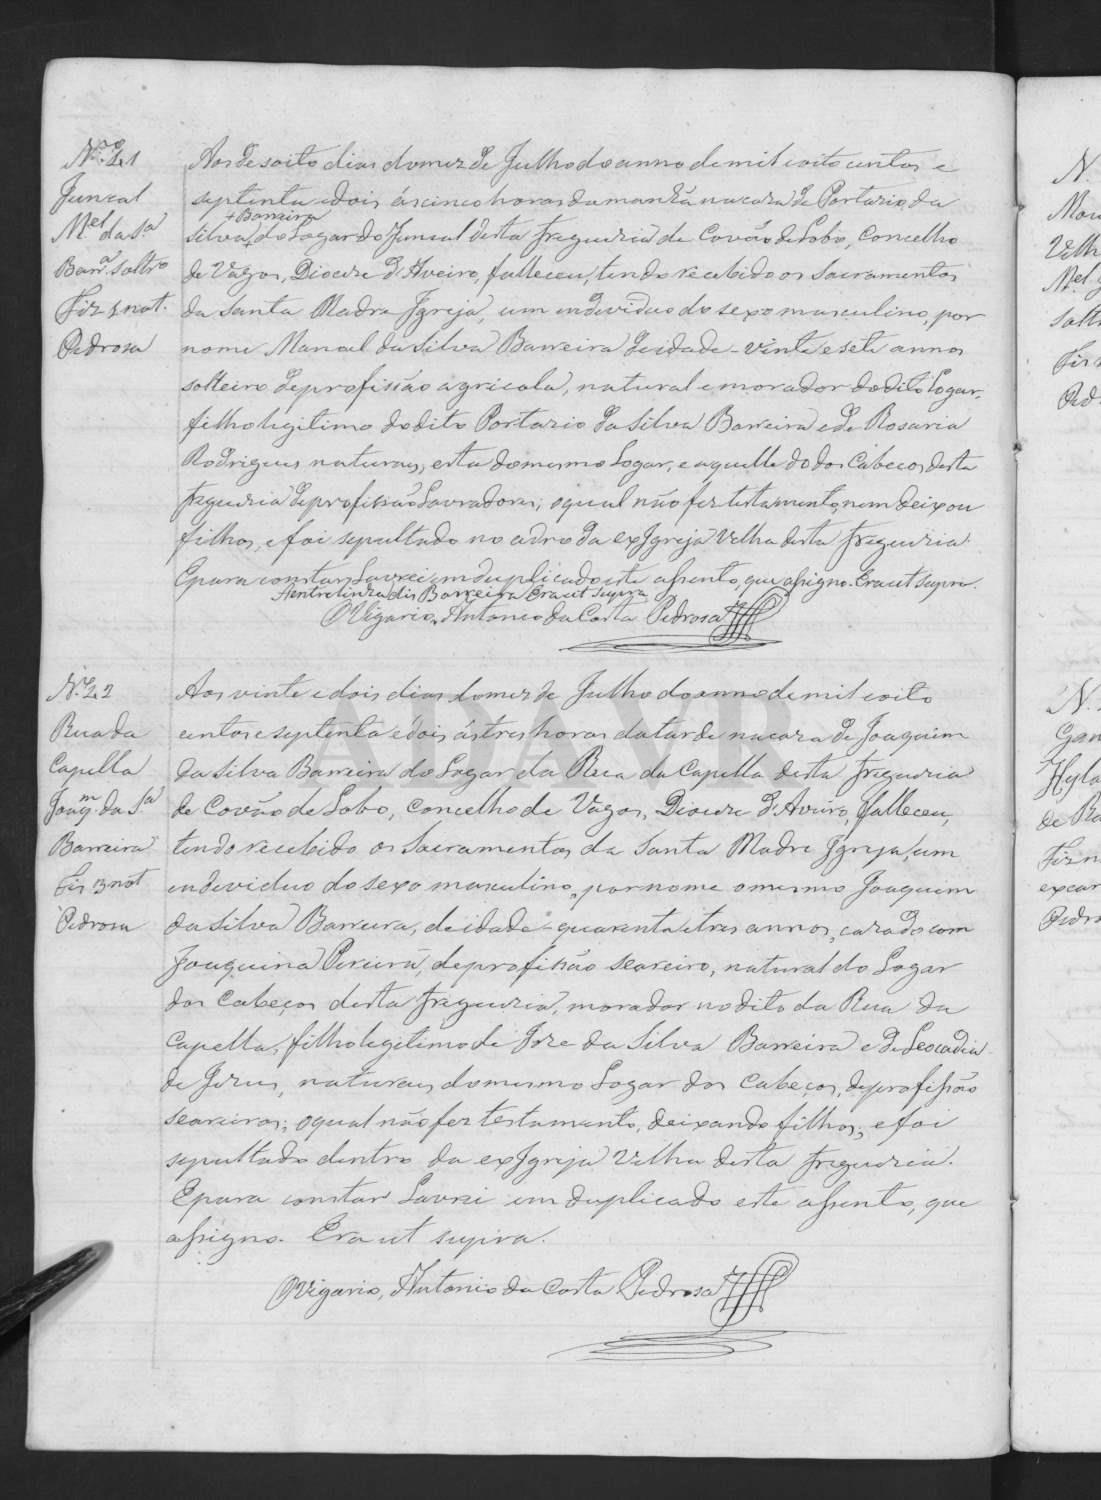 Nº 21
Juncal
M.el da S.a
Barr.a soltro
Fiz 3 not.
Pedrosa
Aos desoito dias do mez de Julho do anno de mil oito centos e
septenta e dois ás cinco horas da manhã na caza de Portazio da
+ Barreira
Silva, do Logar do Juncal desta freguezia de Covão de Lobo, Concelho
de Vagos, Diocese d'Aveiro, falleceu, tendo recebido os Sacramentos
da Santa Madre Igreja, um endeviduo do sexo masculino, por
nome Manoel da Silva Barreira de idade - vinte e sete annos
solteiro de profissão agricola, natural e morador do dito Logar,
filho legitimo do dito Portazio da Silva Barreira e de Rosaria
Rodrigues naturaes, esta do mesmo Logar, e aquelle do dos Cabeços desta
freguezia de profissão Lavradores; o qual não fez testamento, nem deixou
filhos, e foi sepultado no adro da ex Igreja Velha desta freguezia.
E para constar Lavrei em duplicado este assento, que assigno. Era ut supra.
A entrelinha diz Barreira Era ut supra
O Vigario, Antonio da Costa Pedrosa
Nº 22
Rua da
Capella
Joaq.m da S.a
Barreira
Fiz 3 not
Pedrosa
Aos vinte e dois dias do mez de Julho do anno de mil e oito
centos e septenta e dois ás tres horas da tarde na caza de Joaquim
da Silva Barreira do Logar da Rua da Capella desta freguezia
de Covão de Lobo, Concelho de Vagos, Diocese d'Aveiro, falleceu,
tendo recebido os Sacramentos da Santa Madre Igreja, um
endeviduo do sexo masculino, por nome o mesmo Joaquim
da Silva Barreira, de idade - quarenta e tres annos, cazado com
Joaquina Pereira, de profissão seareiro, natural do Logar
dos Cabeços desta freguezia, morador no dito da Rua da
Capella, filho legitimo de Joze da Silva Barreira e de Leocadia
de Jezus, naturaes do mesmo Logar dos Cabeços, de profissão
seareiros; o qual não fez testamento, deixando filhos; e foi
sepultado dentro da ex Igreja Velha desta freguezia.
E para constar Lavrei em duplicado este assento, que
assigno. Era ut supra.
O Vigario, Antonio da Costa Pedrosa
ADAVR